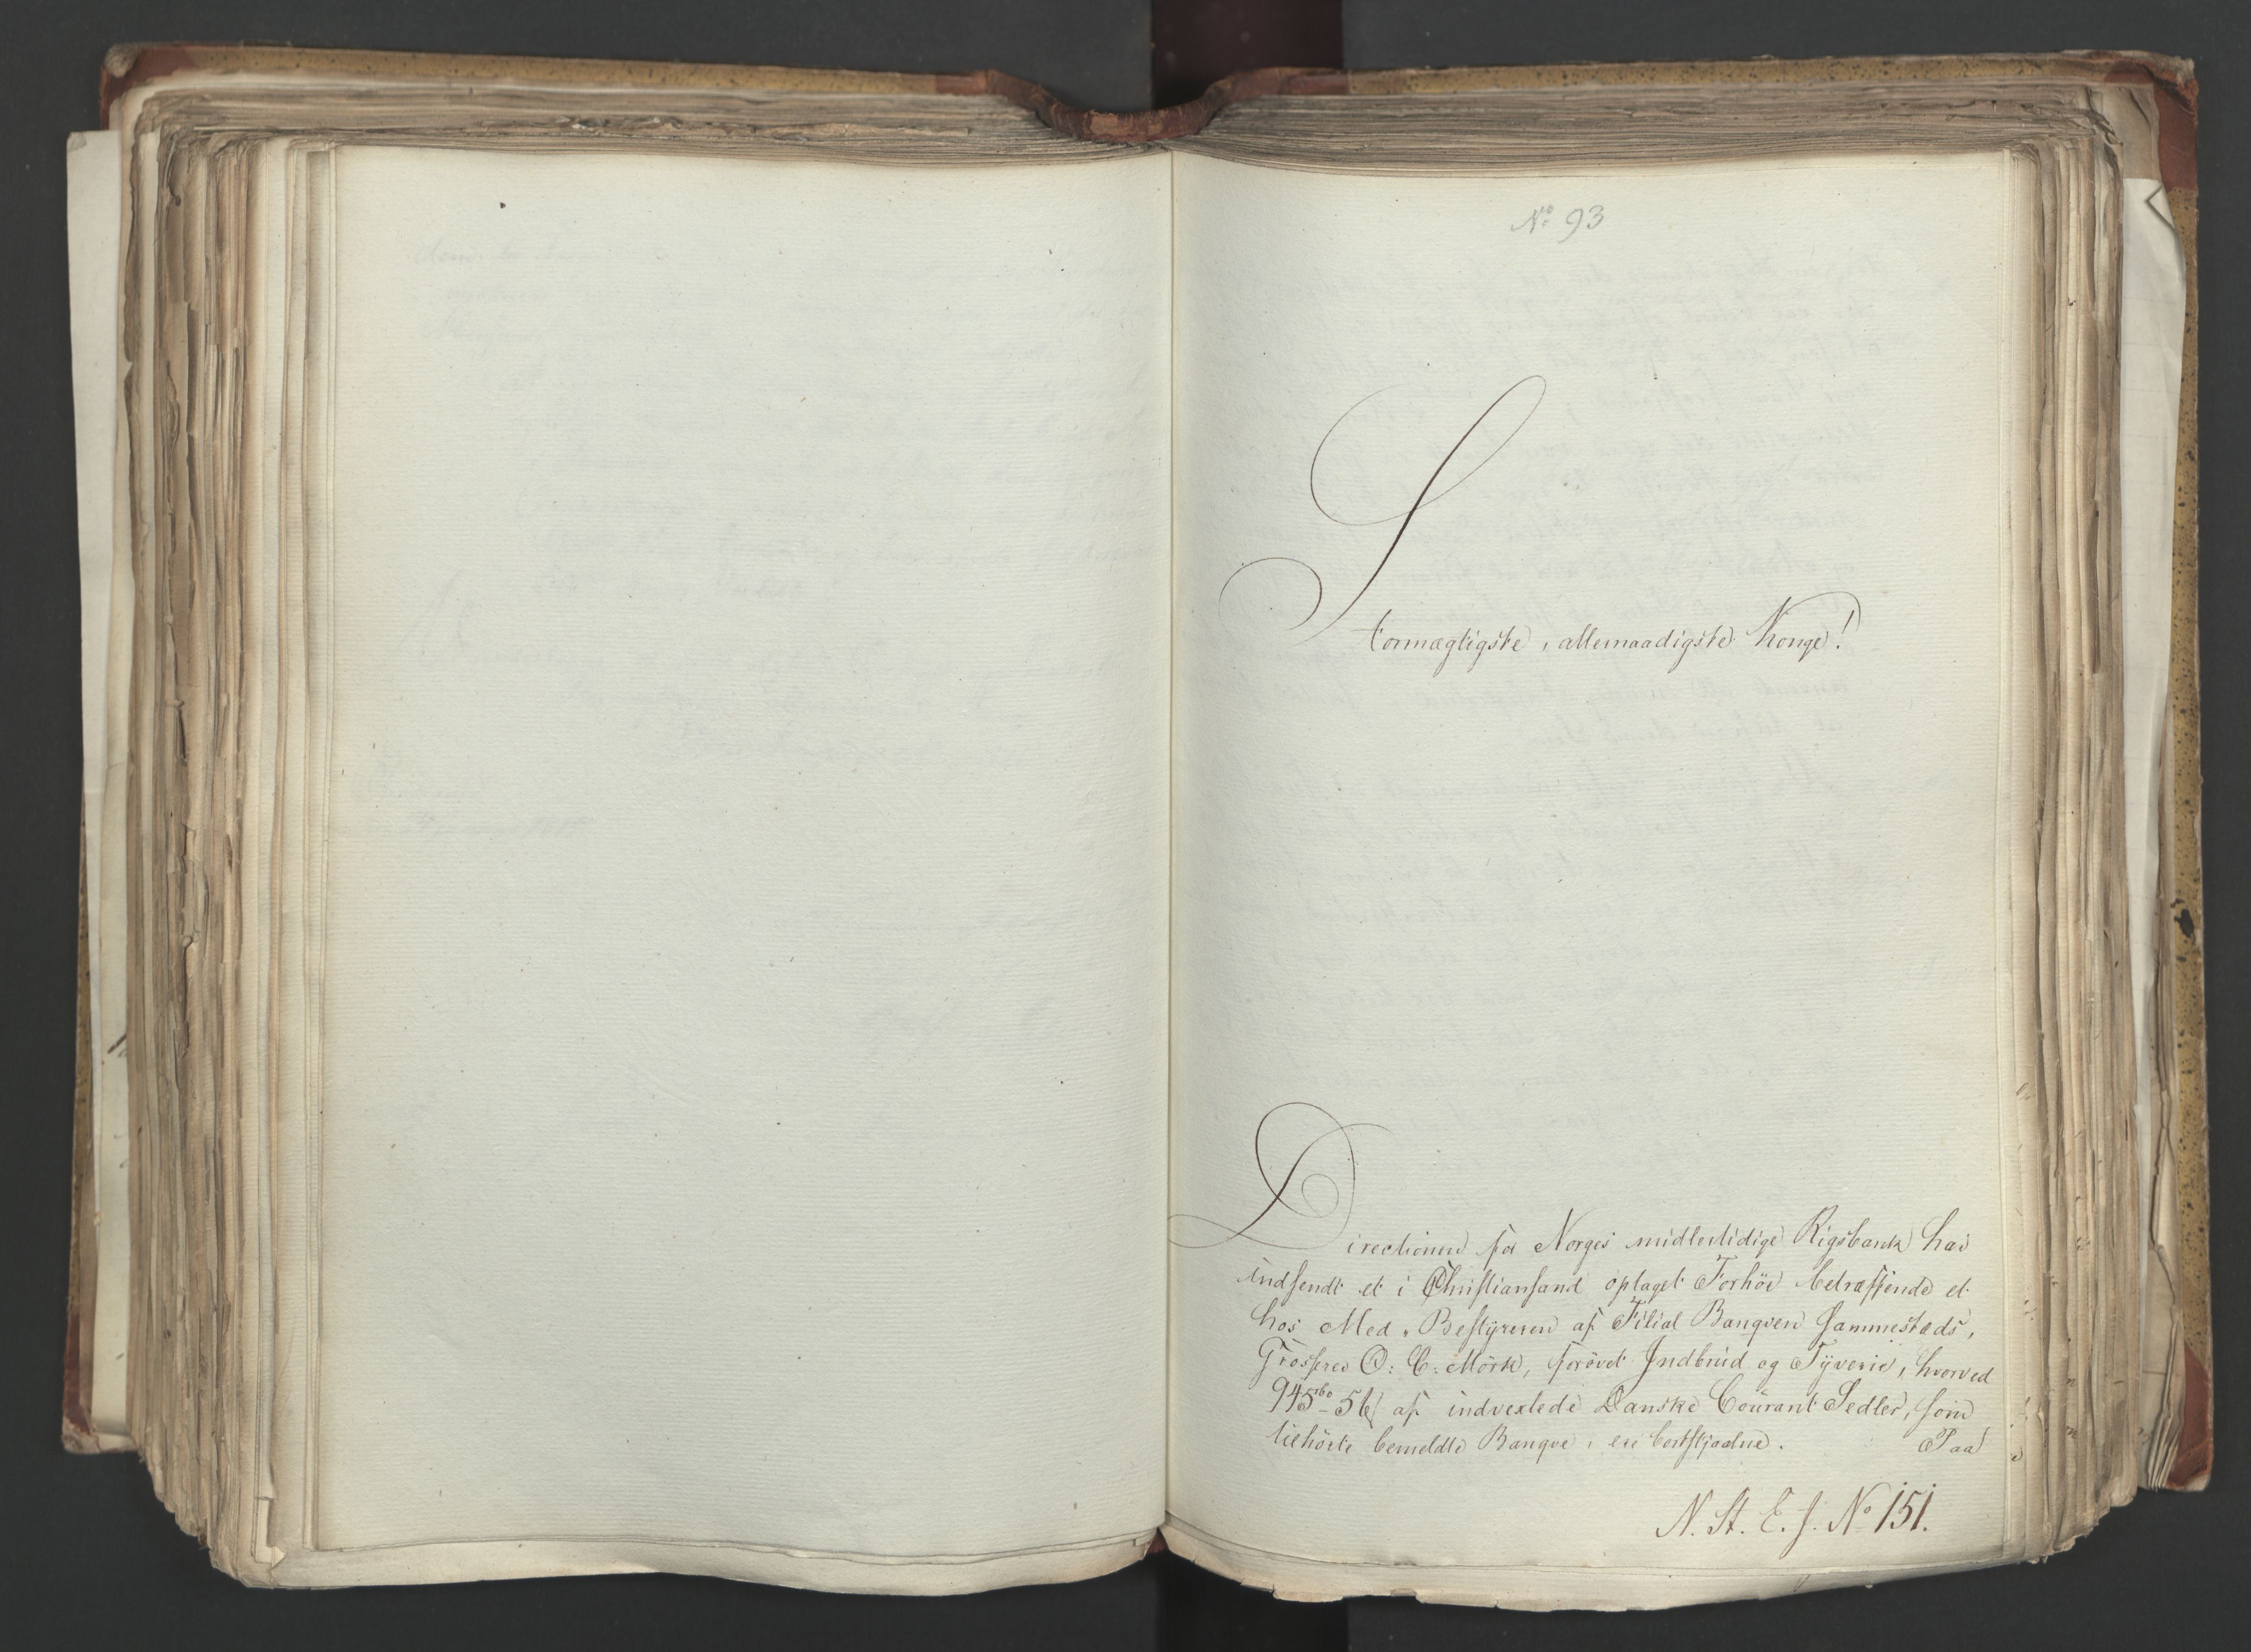 No 93
Stormægtigste, allernaadigste Konge!
Directionen for Norges midlertidige Rigsbank har
indsendt et i Christiansand optaget Forhör betræffende et
hos Med-Bestÿreren af Filial Banqven sammesteds,
Grosserer O: C: Mörk, forövet Indbrud og Tÿverie, hvorved
945 rbd 5 af indvexlede Danske Courant Sedler, som
tilhörte bemeldte Banqve, ere bortstjaalne. Paa
N. St. E. J. No 151.